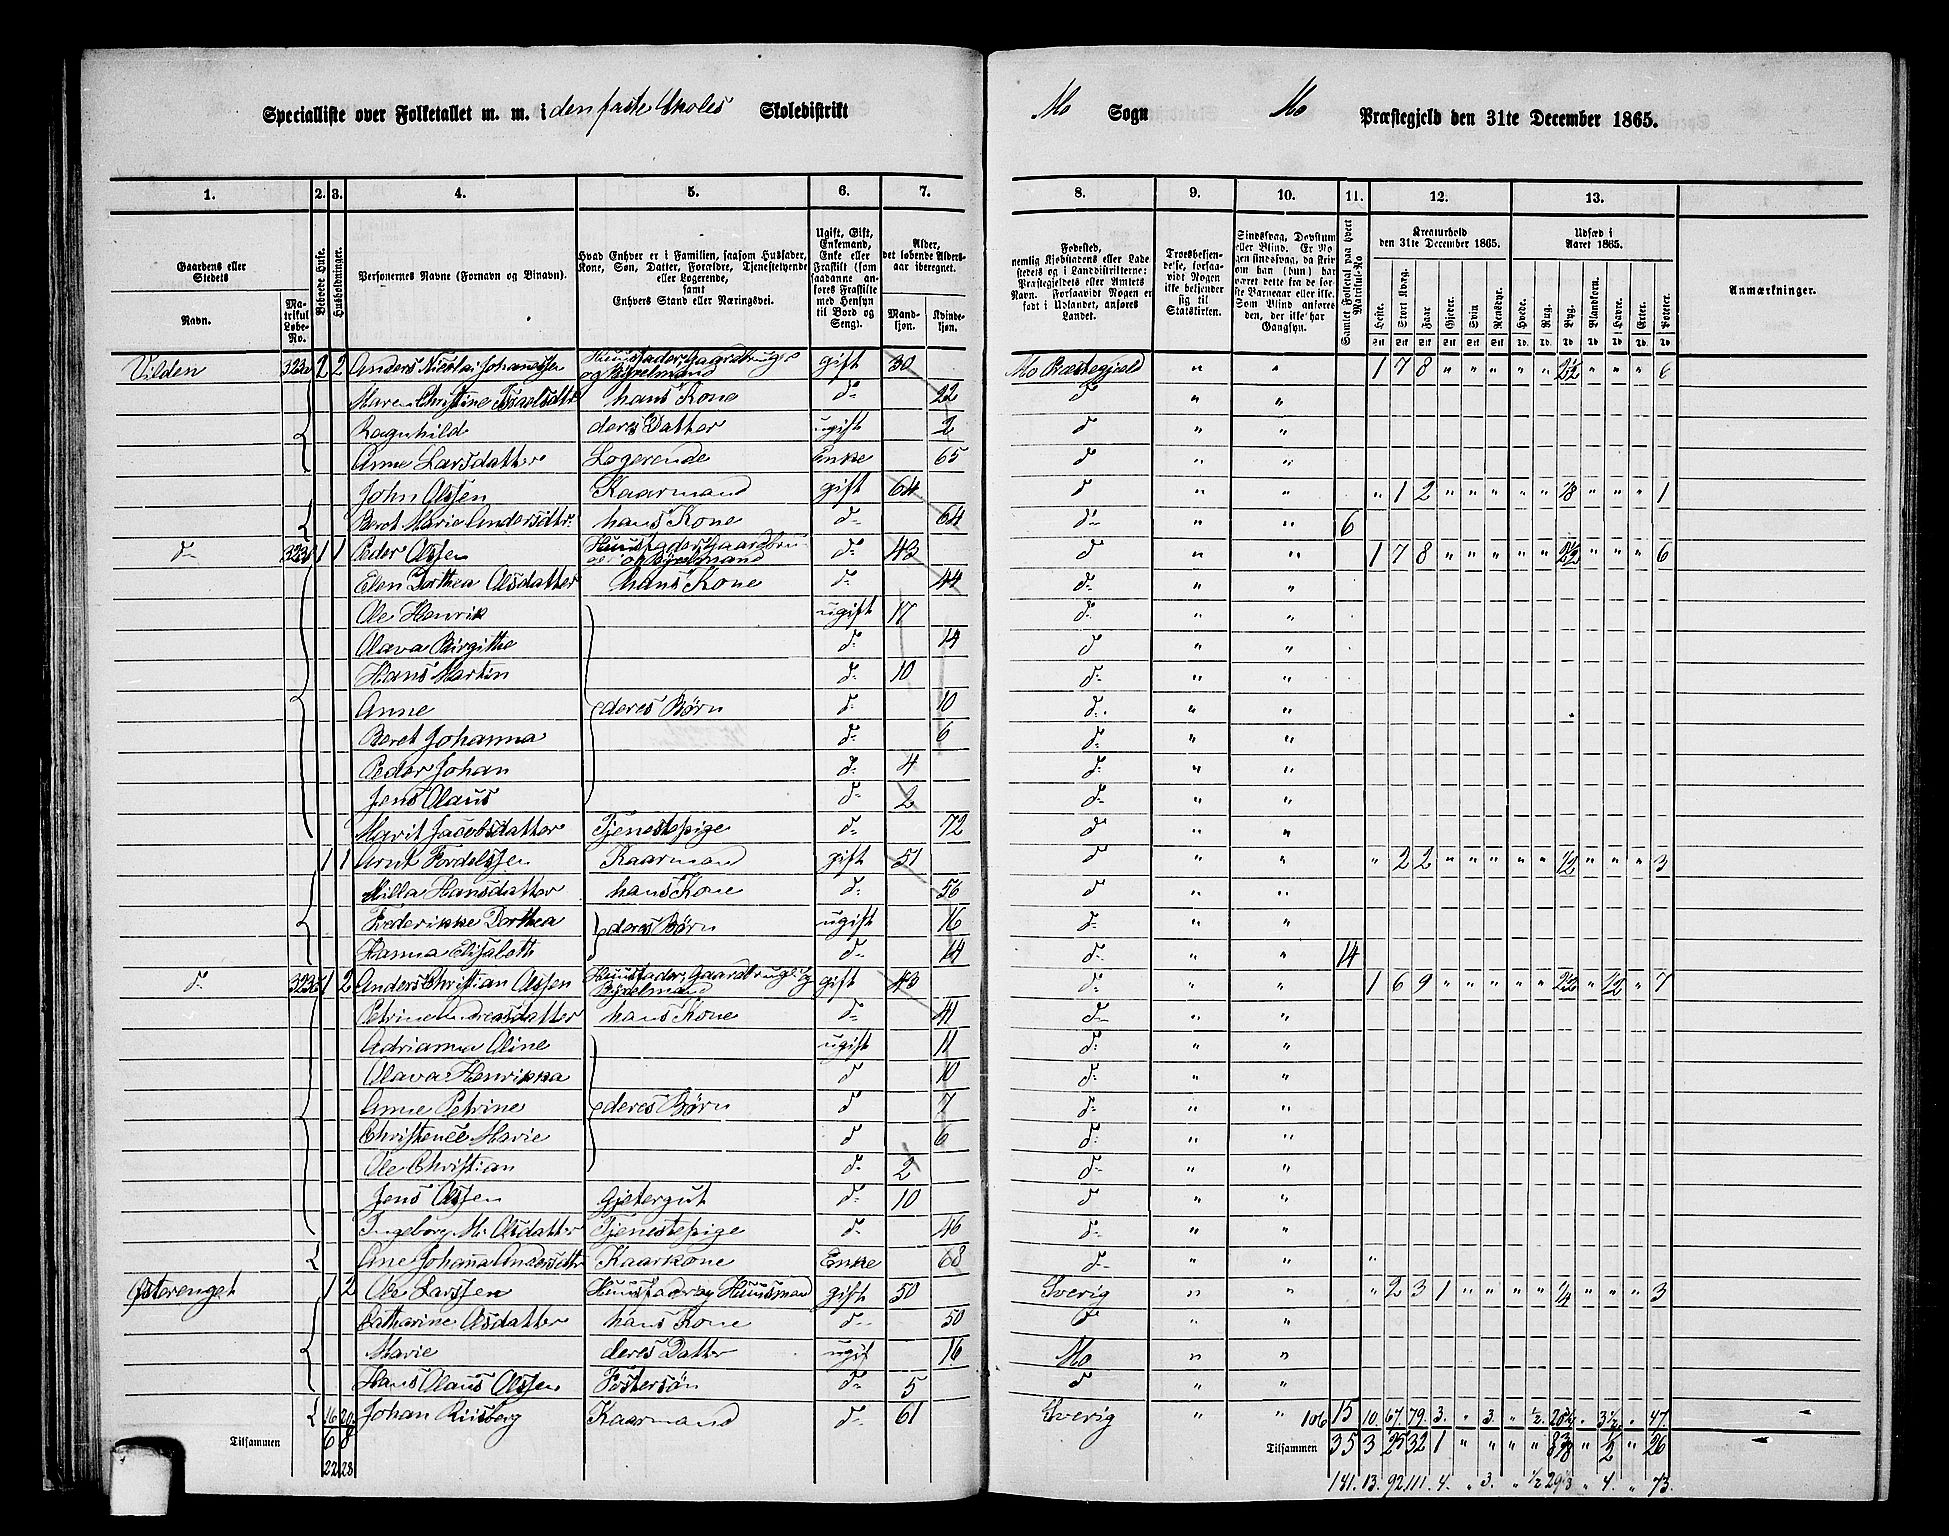 Specialliste over Folketallet m. m. i den faste Skoles Skoledistrikt
Mo Sogn Mo Præstegjeld den 31te December 1865.
1. 2. 3. 4. 5. 6. 7. 8. 9. 10. 11. 12. 13.
Gaardens eller Stedets
Navn.
Matrikul Løbe-No.
Beboede Huse.
Husholdninger.
Personernes Navne (Fornavn og Binavn).
Hvad Enhver er i Familien, saasom Husfader, Kone, Søn, Datter, Forældre, Tjenestetyende eller Logerende, samt Enhvers Stand eller Næringsvei.
Ugift, Gift, Enkemand, Enke eller Fraskilt (saadanne anføres Fraskilte med Hensyn til Bord og Seng).
Alder, det løbende Aldersaar iberegnet.
Mandkjøn. Kvindekjøn.
Fødested,
Anmærkninger.
Kreaturhold den 31te December 1865.
Udsæd i Aaret 1865.
Heste. Stort Kvæg. Faar Gjeder. Svin Rensdyr. Hvede. Rug. Byg. Blandkorn. Havre. Erter. Poteter.
Vilden 323a 2 2 Anders Nicolai Johanessen Huusfader, Gaardbruger og Bygselmand gift 30 Mo Præstegjeld " " 1 7 8 " " " " " 2½ " " " 6
Maren Christine Israelsdtr hans Kone d- 22 d " "
Ragnhild deres Datter ugift 2 d " "
Anne Larsdatter Logerende Enke 65 d " "
John Olssen Kaarmand gift 64 d " " " 1 2 " " " " " 1/8 " " " 1
Beret Marie Andersdtr hans Kone d- 64 d- " " 6
d- 323b 1 1 Peder Olssen d- 43 d " " 1 7 8 " " " " " 2½ " " " 6
Elen Dorthea Olsdatter hans Kone d- 44 d- " "
Ole Henrik ugift 17 d- " "
Olava Birgithe d- 14 d " "
Hans Martin d- 10 d- " "
Anne deres Børn d- 10 d- " "
Beret Johanna d- 6 d- " "
Peder Johan d- 4 d- " "
Jens Olaus d- 2 d- " "
Marit Jacobsdatter Tjenestepige d- 72 d " "
1 1 Arnt Fordelssen Kaarmand gift 51 d " " " 2 2 " " " " " 1/2 " " " 3
Milla Hansdatter hans Kone d- 56 d " "
Frederikke Dorthea deres Børn ugift 16 d- " "
Hanna Elisabeth d- 14 d- " " 14
d- 323c 1 2 Anders Christian Olssen Huusfader, Gaardbruger og Bygselmand gift 43 d- " " 1 6 9 " " " " " 2½ " 1/2 " 7
Petrine Andreasdatter hans Kone d- 41 d- " "
Adrianna Oline ugift 11 d- " "
Olava Henrikka d 10 d- " "
Anne Petrine deres Børn d 7 d- " "
Christence Marie d 6 d- " "
Ole Christian d- 2 d- " "
Jens Olssen Gjetergut d- 10 d " "
Ingeborg M. Olsdatter Tjenestepige d- 46 d- " "
Ane Johanna Andersdtr Kaarkone Enke 68 d- " " "
Østerenget 1 2 Ole Larssen Huusfader og Huusmand gift 50 Sverig " " " 2 3 1 " " " " 1/4 " " " 3
Catharine Olsdatter hans Kone d- 50 d " "
Marie deres Datter ugift 16 Mo " "
Hans Olaus Olssen Fostersøn d- 5 d " "
16 20 Johan Riisberg Kaarmand d- 61 Sverig " " 106 15 10. 67. 79. 3. " 3. " ½. 20¾ " 3½ " 47.
Tilsammen 6 8 Tilsammen 35 3 25 32 1 " " " " 8⅜ " ½ " 26
22 28 141. 13. 92. 111. 4. " 3. " ½ 29⅛ " 4. " 73.